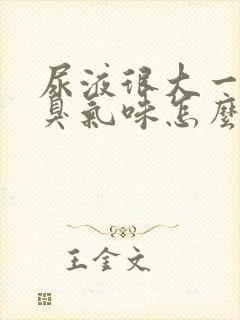 尿液很大一
臭氣味怎麼
王金文